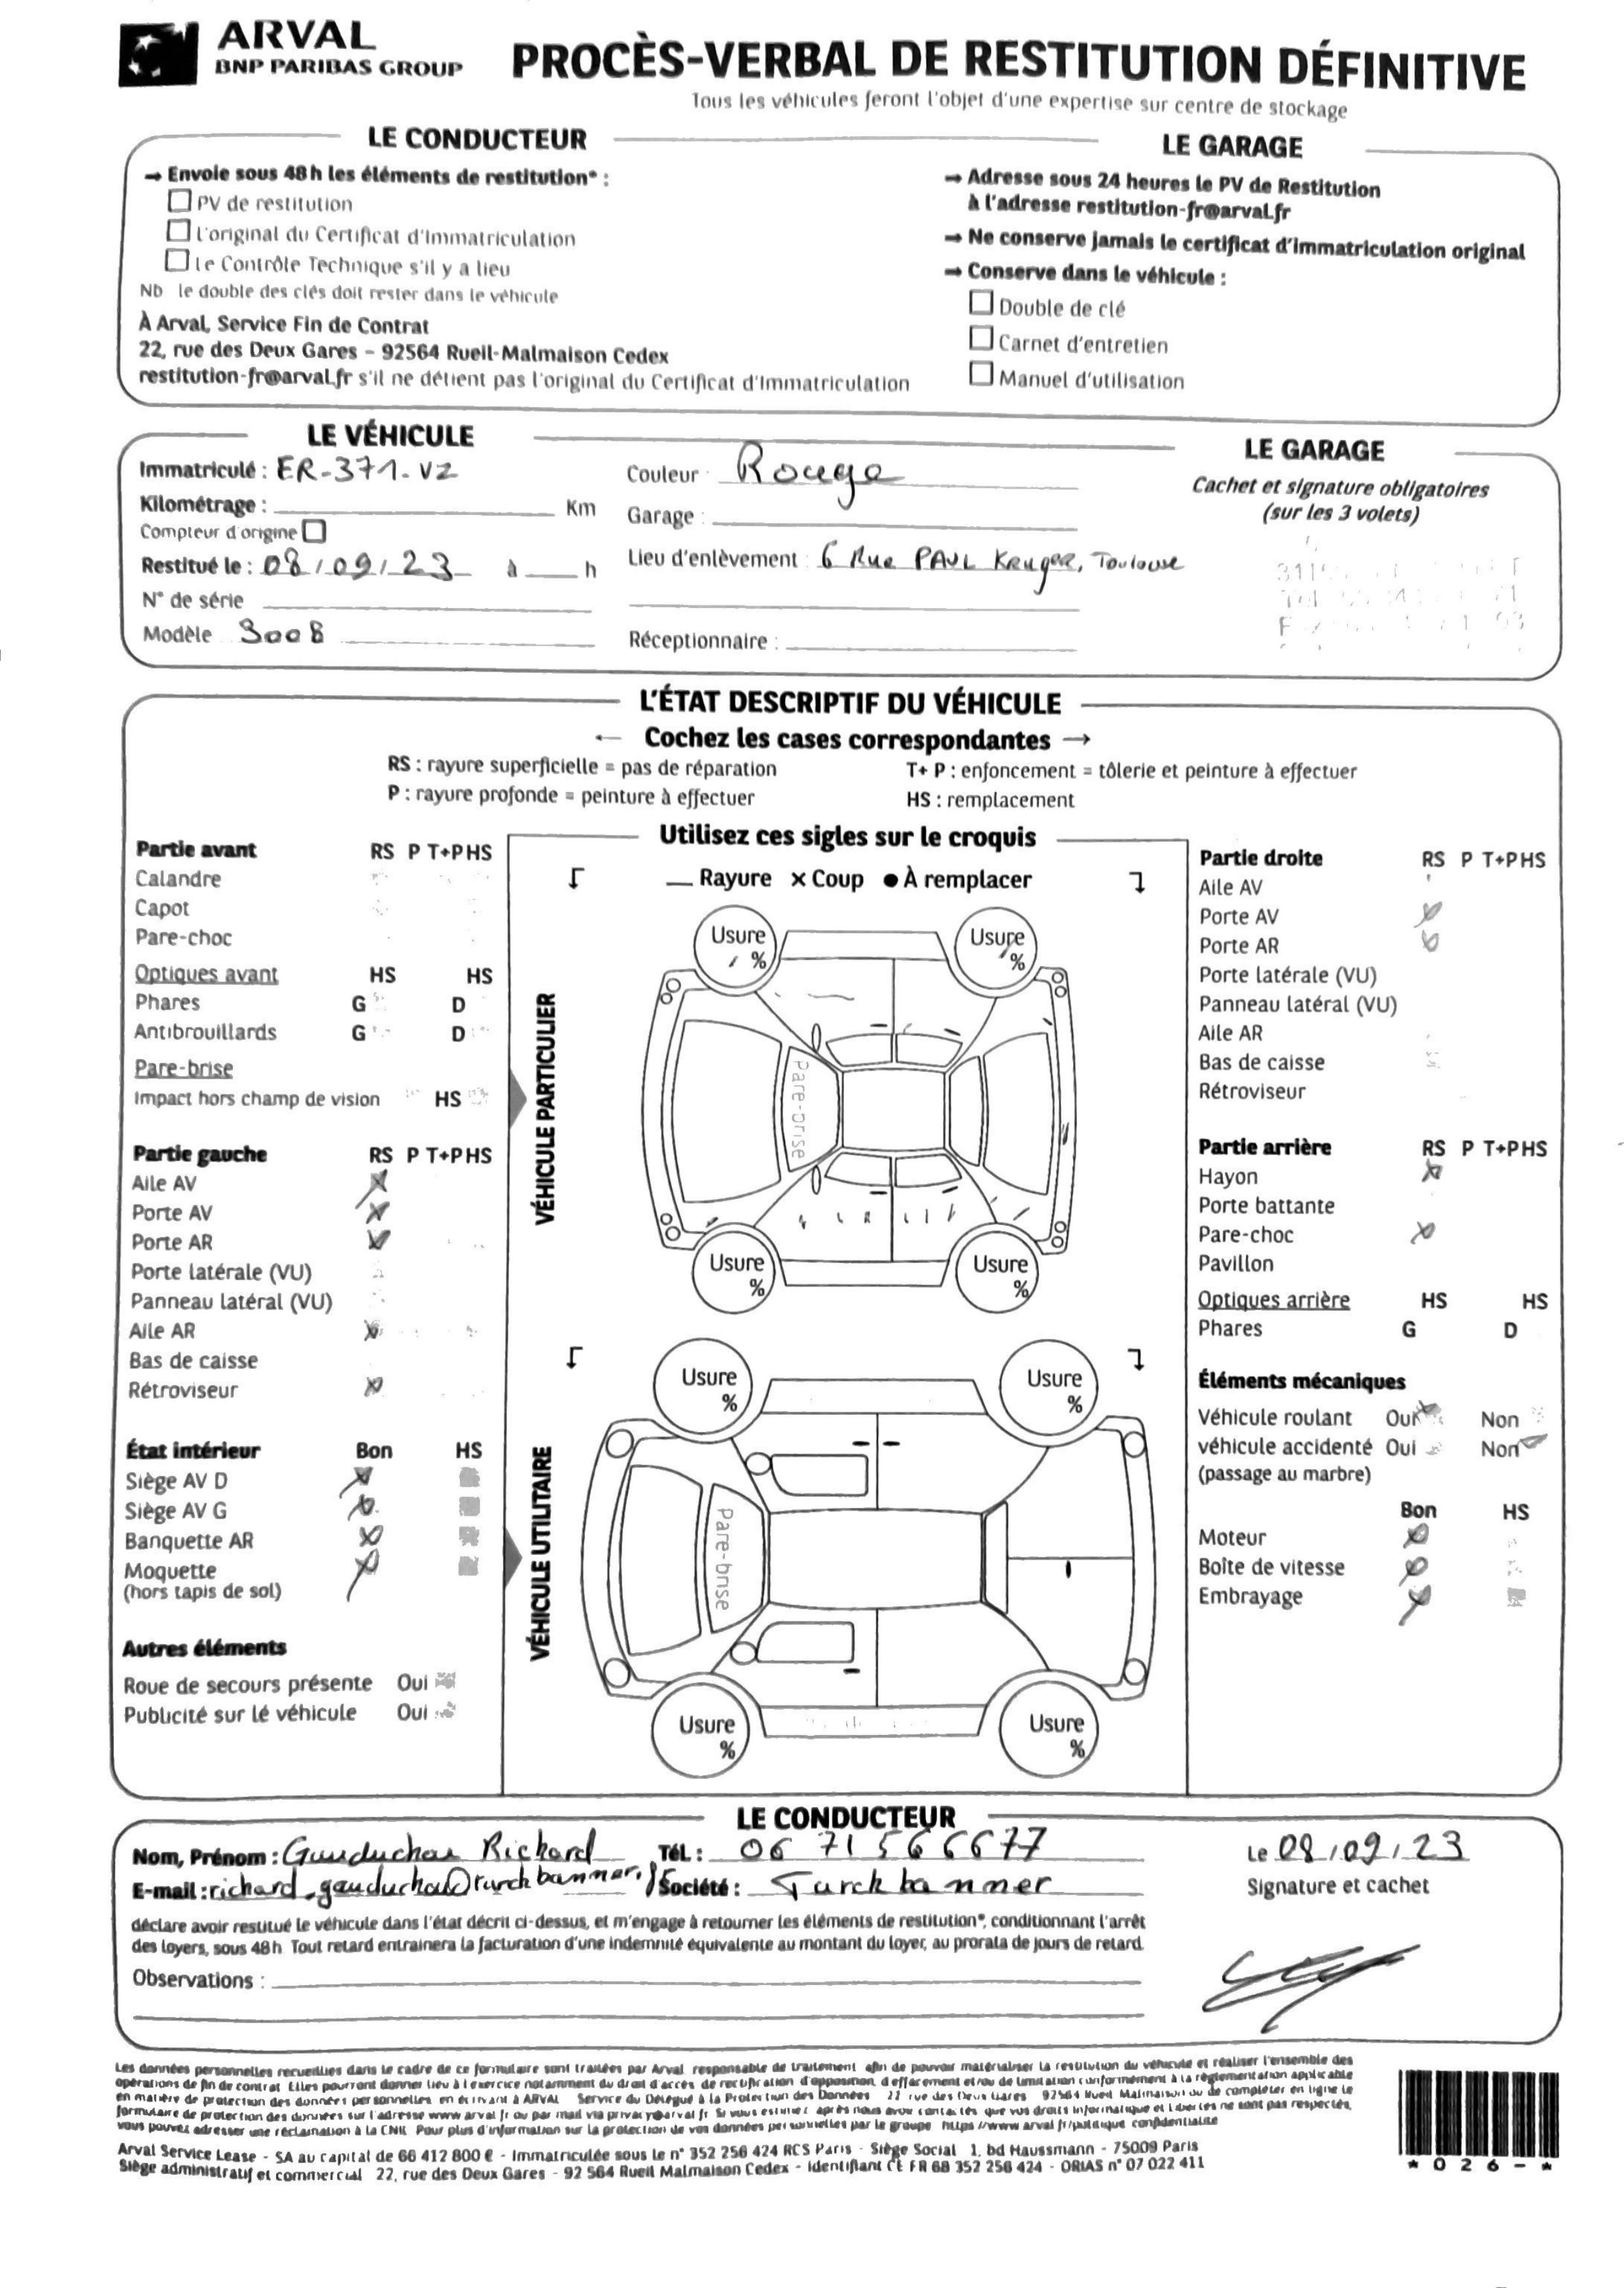 ARVAL
BNP PARIBAS GROUP
PROCÈS-VERBAL DE RESTITUTION DÉFINITIVE
Tous les véhicules feront l'objet d'une expertise sur centre de stockage
LE CONDUCTEUR
→ Envoie sous 48 h les éléments de restitution* :
PV de restitution
L'original du Certificat d'Immatriculation
Le Contrôle Technique s'il y a lieu
Nb le double des clés doit rester dans le véhicule
À Arval, Service Fin de Contrat
22, rue des Deux Gares – 92564 Rueil-Malmaison Cedex
restitution-fr@arval.fr s'il ne détient pas l'original du Certificat d'Immatriculation
LE GARAGE
→ Adresse sous 24 heures le PV de Restitution
à l'adresse restitution-fr@arval.fr
→ Ne conserve jamais le certificat d'immatriculation original
→ Conserve dans le véhicule :
Double de clé
Carnet d'entretien
Manuel d'utilisation
LE VÉHICULE
Immatriculé : ER-371-VZ
Kilométrage : Km
Compteur d'origine
Restitué le : 08/09/23 à h
N° de série
Modèle 3008
Couleur : Rouge
Garage :
Lieu d'enlèvement : 6 Rue PAUL Kruger, Toulouse
Réceptionnaire :
LE GARAGE
Cachet et signature obligatoires
(sur les 3 volets)
L'ÉTAT DESCRIPTIF DU VÉHICULE
← Cochez les cases correspondantes →
RS : rayure superficielle = pas de réparation
P : rayure profonde = peinture à effectuer
T+ P : enfoncement = tôlerie et peinture à effectuer
HS : remplacement
Partie avant RS P T+P HS
Calandre
Capot
Pare-choc
Optiques avant HS HS
Phares G D
Antibrouillards G D
Pare-brise
Impact hors champ de vision HS
Partie gauche RS P T+P HS
Aile AV
Porte AV
Porte AR
Porte latérale (VU)
Panneau latéral (VU)
Aile AR
Bas de caisse
Rétroviseur
État intérieur Bon HS
Siège AV D
Siège AV G
Banquette AR
Moquette
(hors tapis de sol)
Autres éléments
Roue de secours présente Oui
Publicité sur lé véhicule Oui
Utilisez ces sigles sur le croquis
— Rayure × Coup ● À remplacer
VÉHICULE PARTICULIER
Usure %
Usure %
Pare-brise
Usure %
Usure %
VÉHICULE UTILITAIRE
Usure %
Usure %
Pare-brise
Usure %
Usure %
Partie droite RS P T+P HS
Aile AV
Porte AV
Porte AR
Porte latérale (VU)
Panneau latéral (VU)
Aile AR
Bas de caisse
Rétroviseur
Partie arrière RS P T+P HS
Hayon
Porte battante
Pare-choc
Pavillon
Optiques arrière HS HS
Phares G D
Éléments mécaniques
Véhicule roulant Oui Non
véhicule accidenté Oui Non
(passage au marbre)
Bon HS
Moteur
Boîte de vitesse
Embrayage
LE CONDUCTEUR
Nom, Prénom : Richard Tél. : 06 71 56 66 77
E-mail : Société : Turck banner
Le 08/09/23
Signature et cachet
déclare avoir restitué le véhicule dans l'état décrit ci-dessus, et m'engage à retourner les éléments de restitution*, conditionnant l'arrêt
des loyers, sous 48h Tout retard entrainera la facturation d'une indemnité équivalente au montant du loyer, au prorata de jours de retard.
Observations :
Les données personnelles recueillies dans le cadre de ce formulaire sont traitées par Arval responsable de traitement afin de pouvoir matérialiser la restitution du véhicule et réaliser l'ensemble des
opérations de fin de contrat Elles pourront donner lieu à l'exercice notamment du droit d'accès de rectification d'opposition, d'effacement et/ou de limitation conformément à la règlementation applicable
en matière de protection des données personnelles en écrivant à ARVAL Service du Délégué à la Protection des Données 22 rue des Deux Gares 92564 Rueil Malmaison ou de compléter en ligne le
formulaire de protection des données sur l'adresse www arval fr ou par mail via privacy@arval fr Si vous estimez après nous avoir contactés que vos droits Informatique et Libertés ne sont pas respectés,
vous pouvez adresser une réclamation à la CNIL Pour plus d'information sur la protection de vos données personnelles par le groupe https //www arval fr/politique confidentialite
Arval Service Lease - SA au capital de 66 412 800 € - Immatriculée sous le n° 352 256 424 RCS Paris - Siège Social 1, bd Haussmann - 75009 Paris
Siège administratif et commercial 22, rue des Deux Gares - 92 564 Rueil Malmaison Cedex - Identifiant CE FR 68 352 256 424 - ORIAS n° 07 022 411
* 0 2 6 - *